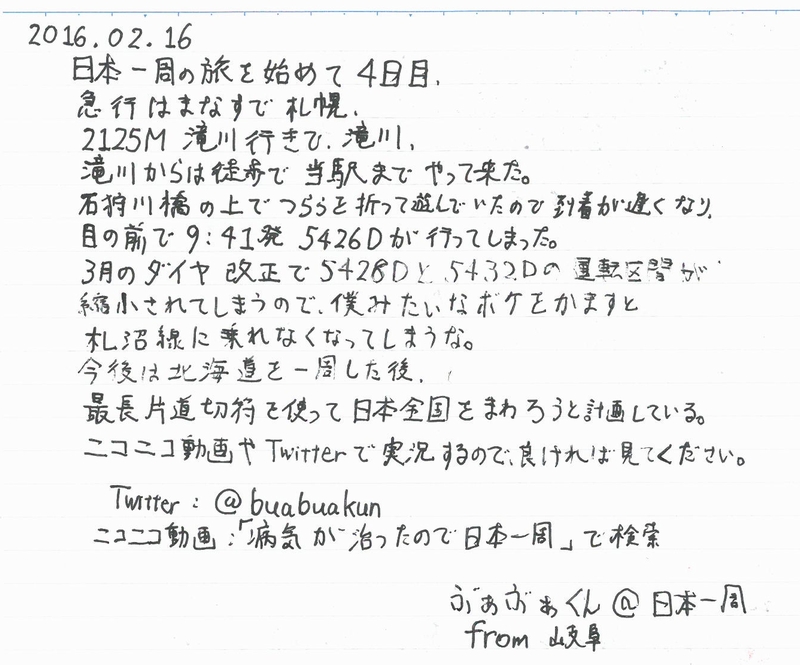 2016.02.16
日本一周の旅を始めて4日目、
急行はまなすで札幌、
2125M 滝川行きで、滝川、
滝川からは徒歩で当駅までやって来た。
石狩川橋の上でつららを折って遊んでいたので到着が遅くなり、
目の前で9:41発 5426Dが行ってしまった。
3月のダイヤ改正で5428Dと5432Dの運転区間が
縮小されてしまうので、僕みたいなボケをかますと
札沼線に乗れなくなってしまうな。
今後は北海道を一周した後、
最長片道切符を使って日本全国をまわろうと計画している。
ニコニコ動画やTwitterで実況するので、良ければ見てください。
Twitter: @buabuakun
ニコニコ動画:「病気が治ったので日本一周」で検索
ぶぁぶぁくん@日本一周
from 岐阜